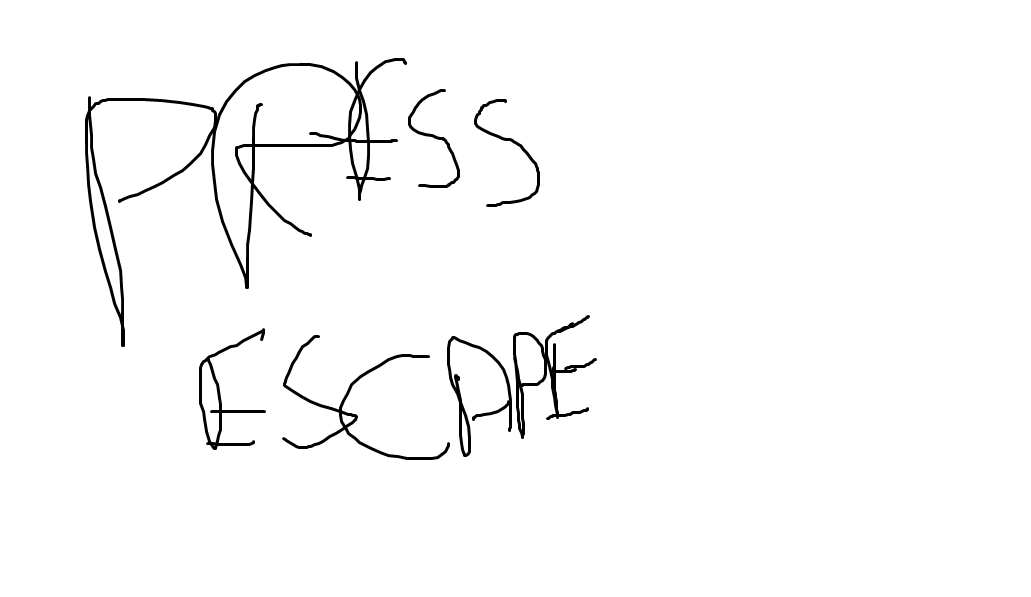 PRESS
ESCAPE